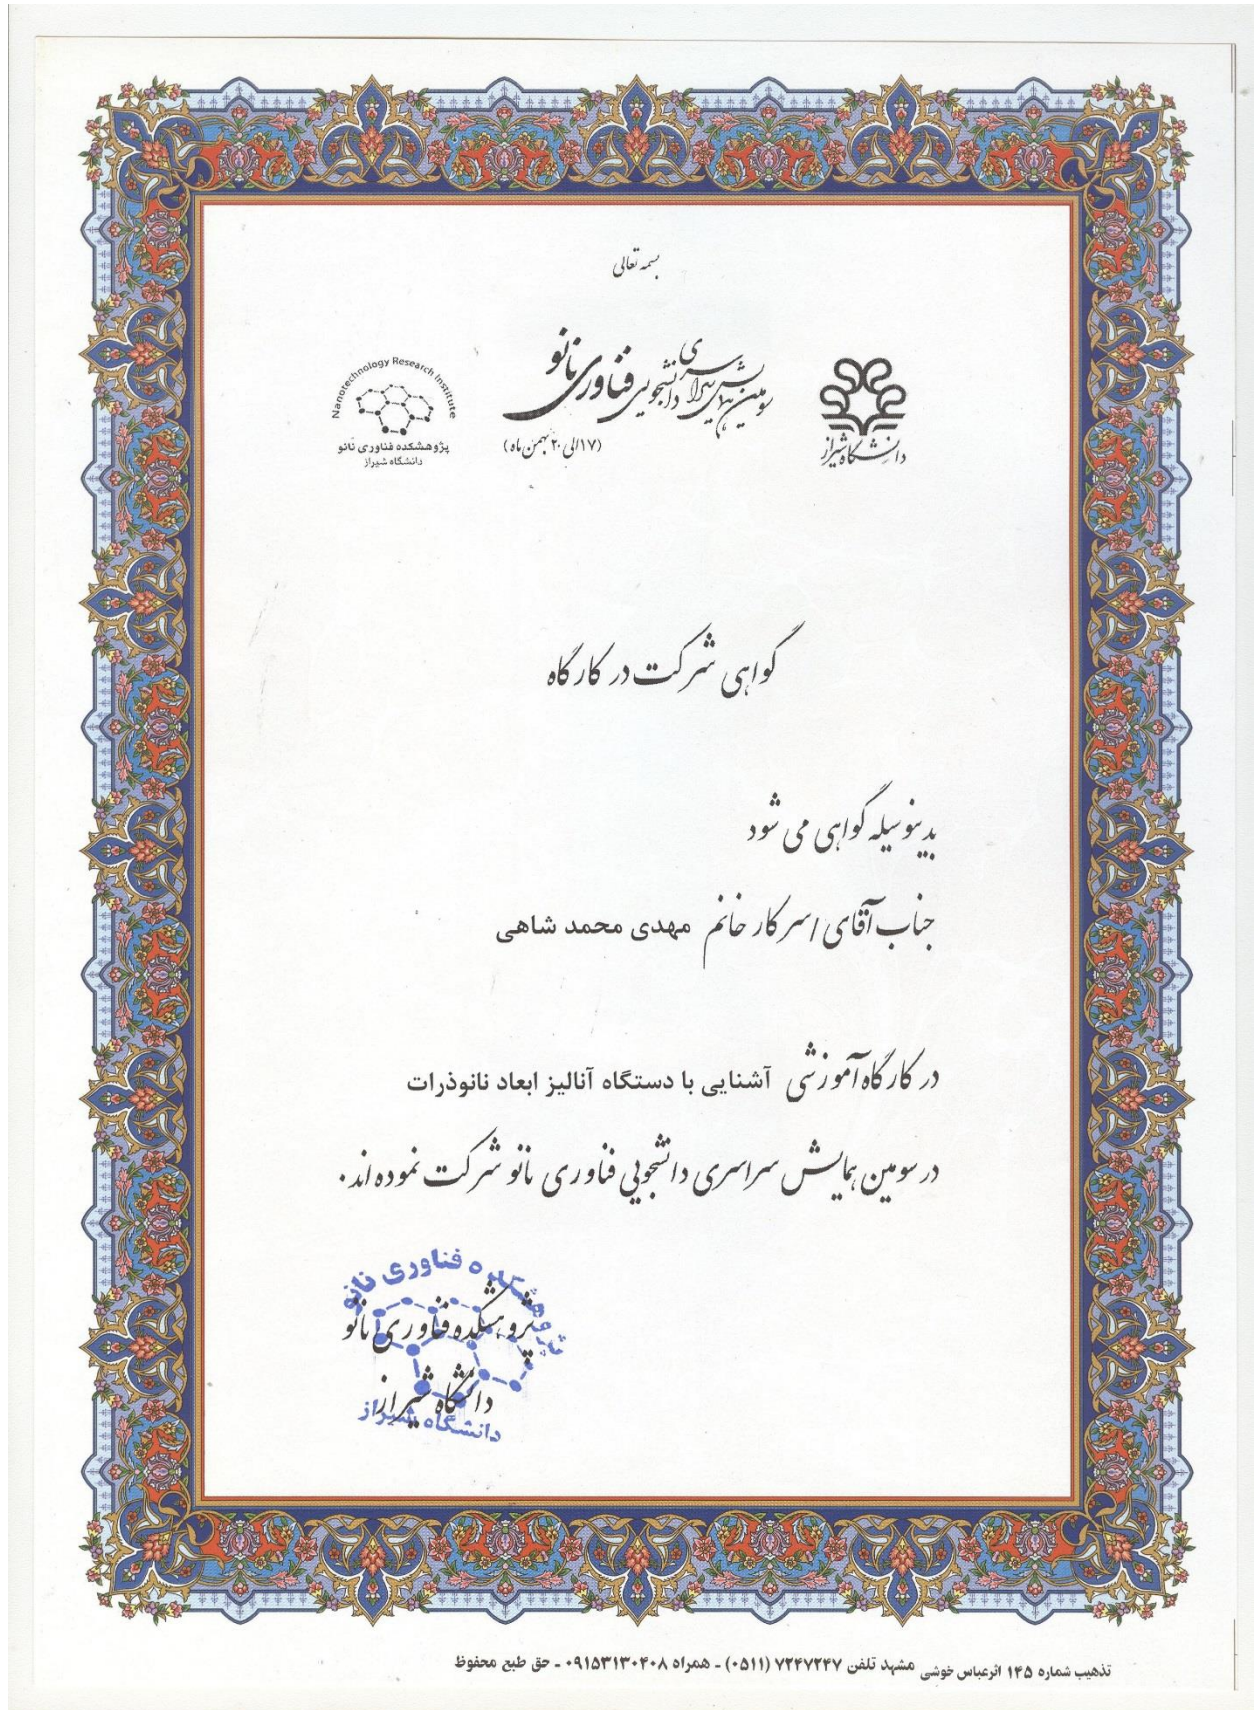 بسمه تعالی
سومین همایش سراسری دانشجویی فناوری نانو
(۱۷ الی ۲۰ بهمن ماه)
دانشگاه شیراز
Nanotechnology Research Institute
پژوهشکده فناوری نانو
دانشگاه شیراز
گواهی شرکت در کارگاه
بدینوسیله گواهی می شود
جناب آقای / سرکار خانم مهدی محمد شاهی
در کارگاه آموزشی آشنایی با دستگاه آنالیز ابعاد نانوذرات
در سومین همایش سراسری دانشجویی فناوری نانو شرکت نموده اند.
پژوهشکده فناوری نانو
دانشگاه شیراز
پژوهشکده فناوری نانو
دانشگاه شیراز
تذهیب شماره ۱۴۵ اثرعباس خوشی مشهد تلفن ۷۲۴۷۲۴۷ (۰۵۱۱) ـ همراه ۰۹۱۵۳۱۳۰۴۰۸ ـ حق طبع محفوظ